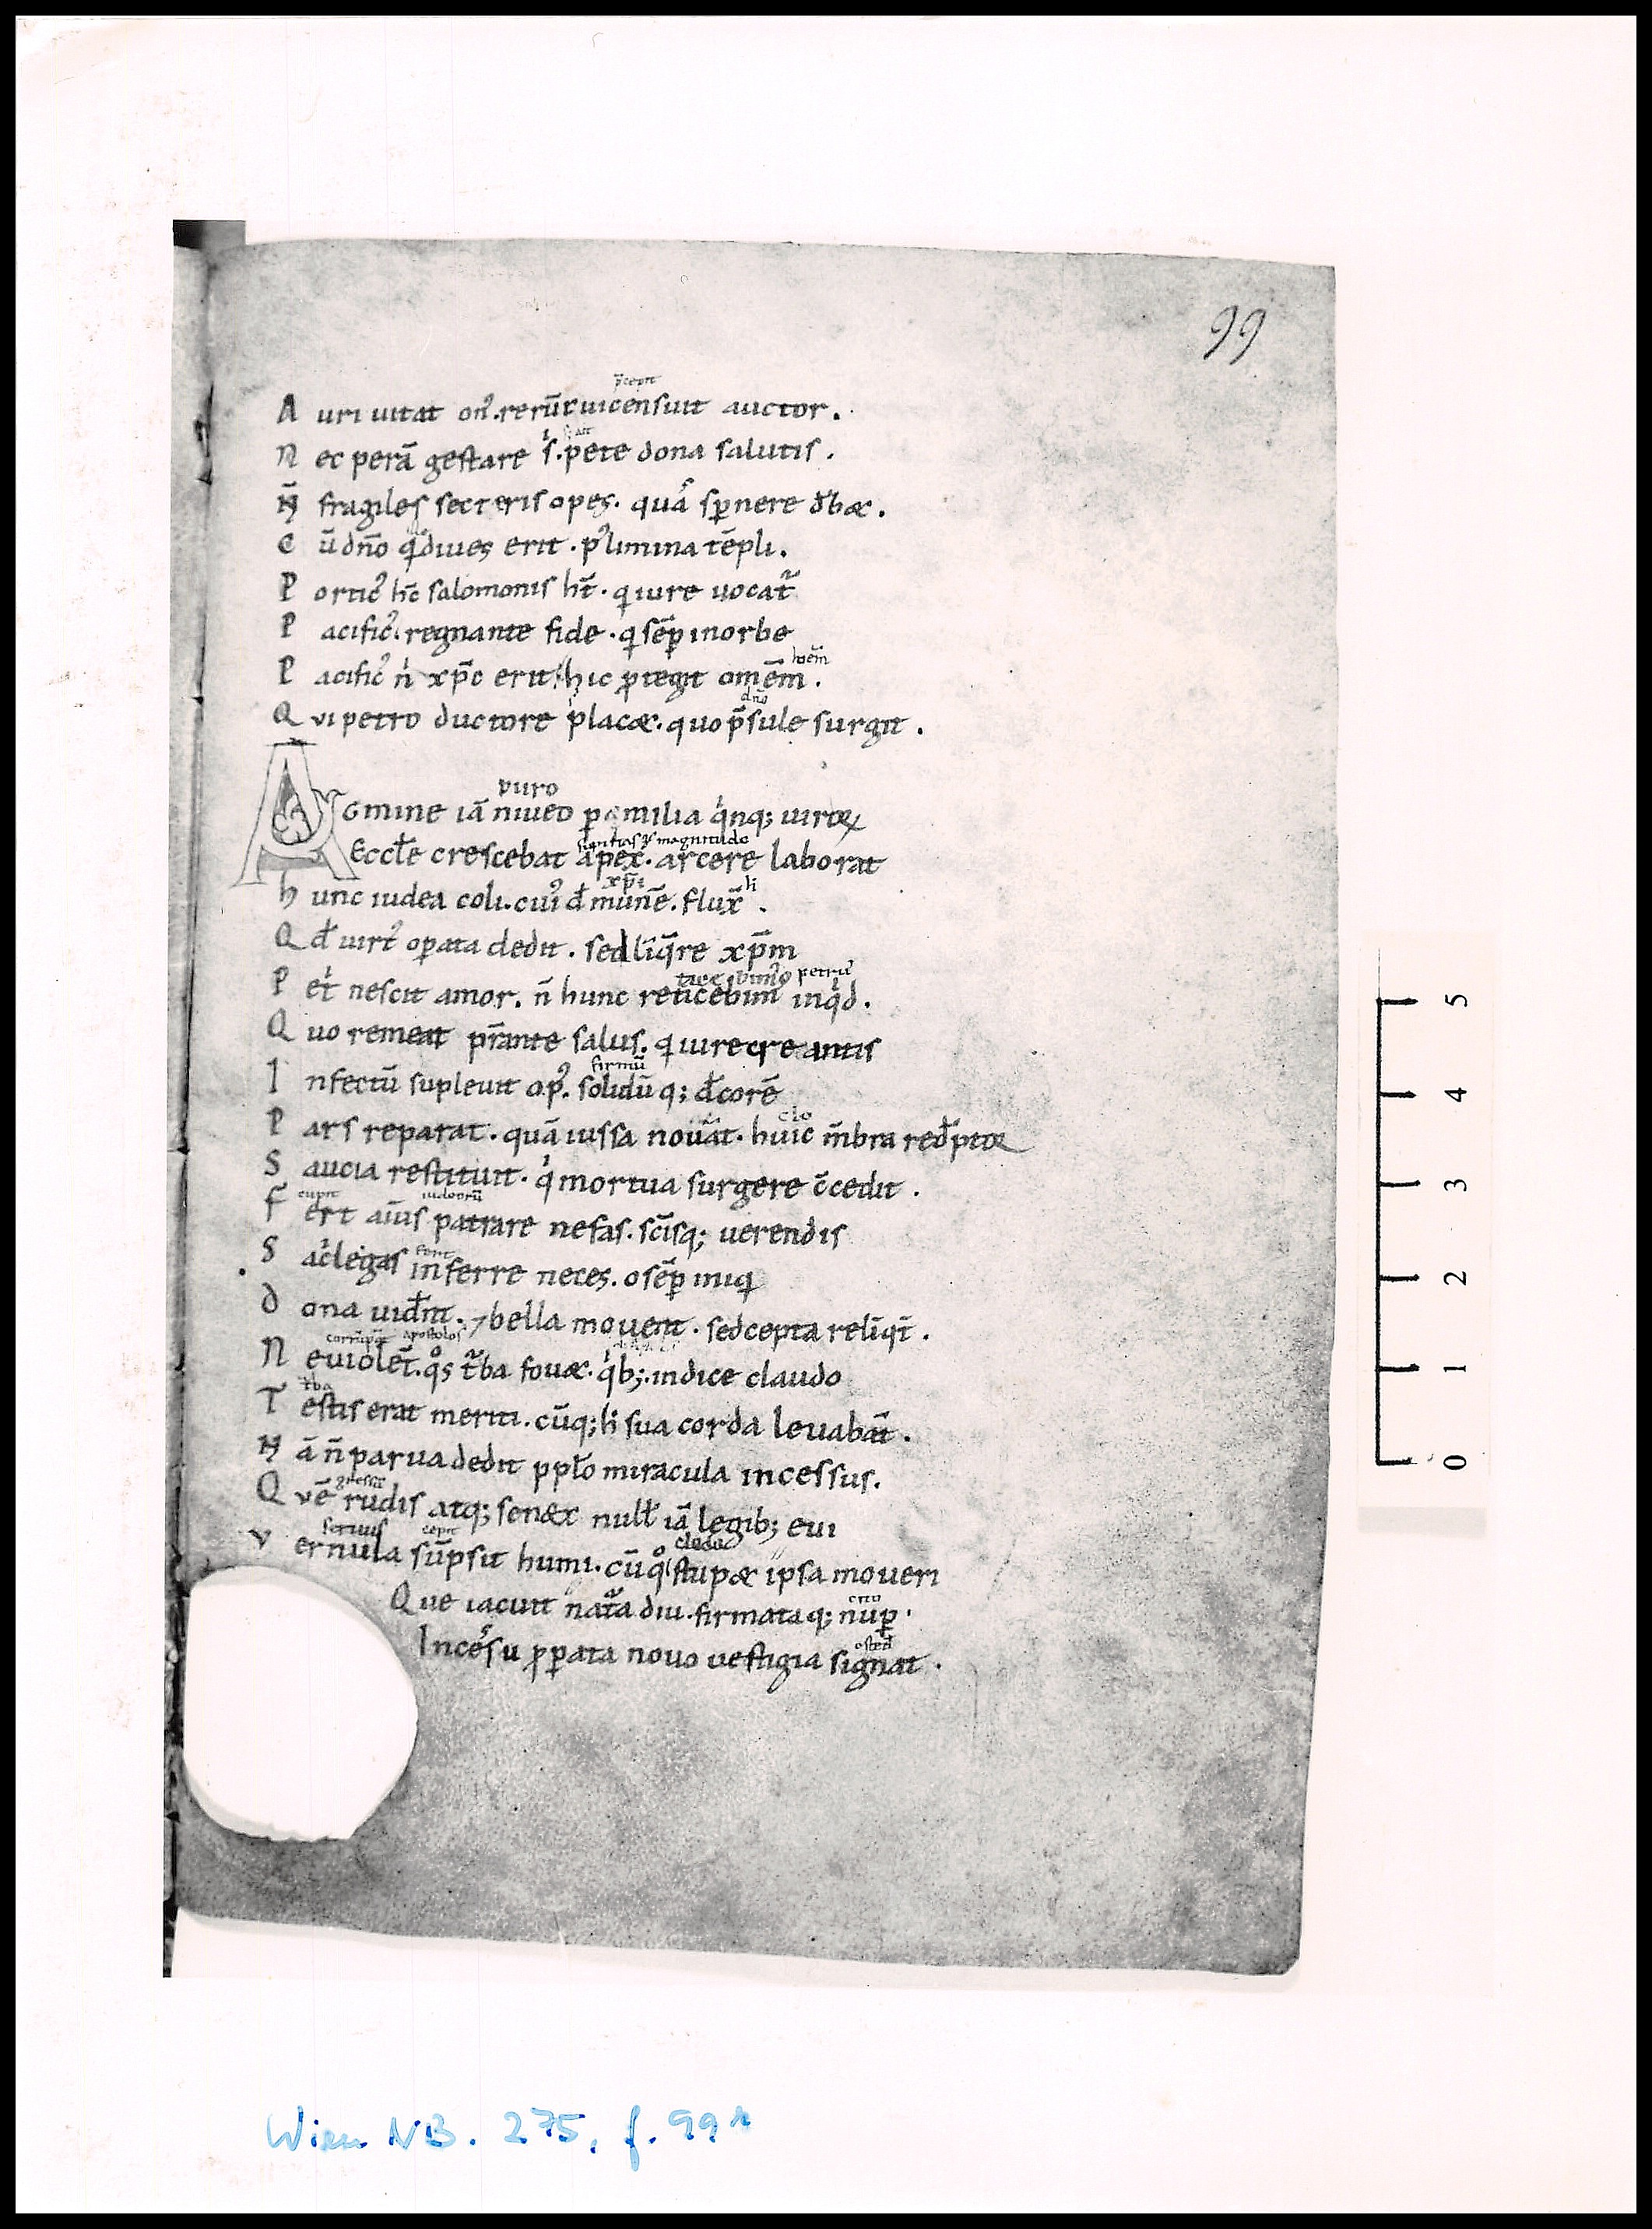 99
p̄cepit
A uri uitat on᷒. rerū cui censuit auctor.
N ec perā gestare s;. pete dona salutis.
N̄ fragiles secteris opes. quas spernere d̄bæ.
C ū dn̄o qd̄ diues erit. p᷒ limina tēpli.
P ortic᷒ hc̄ salomonis ht̄. q iure uocat᷑
P acific᷒. regnante fide. q sēp in orbe
hoēm
P acific᷒ n xp̄c erit hic ꝓtegit omēm.
dn̄o
Q vi petro ductore placæ. quo p̄sule surgit.
puro
A Gmine iā niueo p milia qnq; uiroꝝ
magnitudo
Eccłe crescebat apex. arcere laborat
xp̄i li
h unc iudea coli. cui᷒ d̄ munē. flux̄.
Q d̄ uirt᷒ oꝑata dedit. sed līq̄re xp̄m
petru᷒
P et nescit amor. n̄ hunc reticebim᷒ inqd.
Q uo remeat p̄rante salus. q iure creantis
firmū
I nfectū supleuit op᷒. solidūq; d̄corē
clo
P ars reparat. quā iussa nouāt. huic m̄bra red̄ptoꝝ
S aucia restituit. q mortua surgere c̄cedit.
cupit iudeorū
F ert aīus patrare nefas. sc̄isq; uerendis
S aclegas inferre neces. o sēp iniq
D ona uid̄nt. ⁊ bella mouent. sed cepta relīqt̄.
corrūpāt apostolos
N e uiolēt. qs t᷑ba fouæ. qb;. indice claudo
t᷑ba
T estis erat meriti. cūq; li sua corda leuabāt.
N ā n̄ parua dedit ppło miracula incessus.
gressū
Q vē rudis atq; senex null iā legib; eui
seruus cepit
V ernula sūpsit humi. cūq stupæ ipsa moueri
cito
Que iacuit nat᷑a diu. firmataq; nuꝑ.
osted̄
Incessu ꝓꝑata nouo uestigia signat.
0 1 2 3 4 5
Wien NB. 275, f. 99r